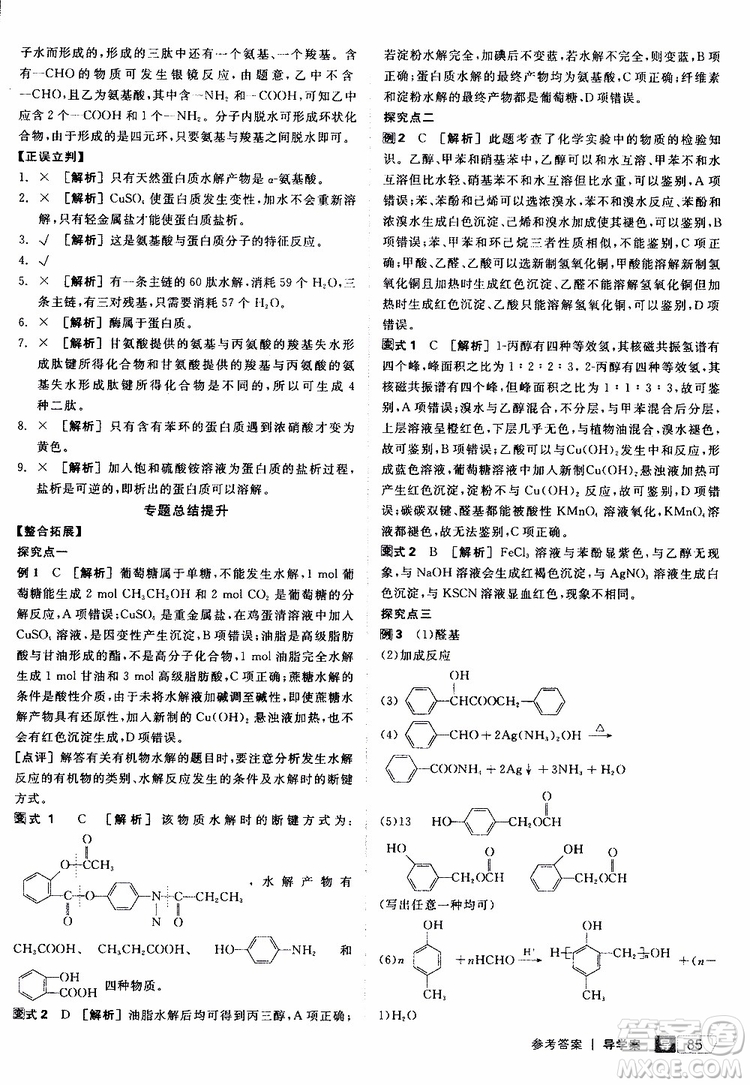 子水而形成的,形成的三肽中有一个氨基、一个羧基。
有—CHO的物质可发生银镜反应,由题意,乙中不含
—CHO,且乙为氨基酸,其中有—NH₂和—COOH,故
含有2个—COOH和1个—NH₂。分子内脱水形成环状化
合物,形成的是四元环,只要氨基与羧基之间脱水即可。
【正误立判】
1. × [解析]只有天然蛋白质水解产物是α-氨基酸。
2. × [解析]CuSO₄使蛋白质发生变性,加水不会重新溶
解。只有轻金属盐才能使蛋白质盐析。
3. √ [解析]这是氨基酸与蛋白质分子的特征反应。
4. √
5. × [解析]有一条主链的60肽水解,消耗59个H₂O,有
三条主链,有三对残基,只消耗57个H₂O。
6. × [解析]酶属于蛋白质。
7. × [解析]甘氨酸提供的氨基与丙氨酸的羧基失水形
成肽键所得化合物和甘氨酸提供的羧基与丙氨酸的氨
基失水形成肽键所得化合物是不同的,所以能生成4
种二肽。
8. × [解析]只有含有苯环的蛋白质遇到浓硝酸才变为
黄色。
9. × [解析]加入饱和硫酸铵溶液为蛋白质的盐析过程,
盐析是可逆的,即再加水可以溶解。
专题总结提升
【整合拓展】
探究点一
例1 C [解析]葡萄糖属于单糖,不能发生水解,1 mol葡
萄糖能生成2 mol CH₃CH₂OH和2 mol CO₂,A项错误;
CuSO₄是重金属盐,在鸡蛋清溶液中加入
CuSO₄溶液,是因变性产生沉淀,B项错误;油脂是高级脂肪
酸与甘油形成的酯,不属于高分子化合物,1 mol油脂完全水解
生成1 mol甘油和3 mol高级脂肪酸,C项正确;蔗糖水解的
条件是酸性介质,如不将水解液加碱调至碱性,即使蔗糖的
水解产物具有还原性,加入新制的Cu(OH)₂悬浊液加热,也不
会有红色沉淀生成,D项错误。
[点评]解答有关有机物水解的题目时,要注意分析发生水解
反应的有机物的类别、水解的条件及水解时的断键
方式。
变式1 C [解析]该物质水解时的断键方式为:
,水解产物有
CH₃COOH、CH₃CH₂COOH、HO— —NH₂和
OH COOH 四种物质。
变式2 D [解析]油脂水解后均可得到丙三醇,
若淀粉水解完全,加碘后不变蓝,若水解不完全,则变蓝,B项
正确;蛋白质水解的最终产物为氨基酸,C项正确;纤维素
和淀粉水解的最终产物都是葡萄糖,D项错误。
探究点二
例2 C [解析]此题考查了化学实验中的物质的检验知
识。乙醇、甲苯和硝基苯中,乙醇可以和水互溶、甲苯不和水
互溶但比水轻、硝基苯不和水互溶但比水重,可以用水鉴别,A项
错误;苯、苯酚和己烯可以选浓溴水,苯不和溴水反应、苯酚和
浓溴水生成白色沉淀、己烯和溴水加成并使其褪色,可以鉴别,B项
错误;苯、甲苯和环己烷三者性质相似,不能鉴别,C项
正确;甲酸、乙醛、乙酸可选新制氢氧化铜,甲酸能溶解新制氢
氧化铜但加热时生成红色沉淀、乙醛不能溶解氢氧化铜但加
热时生成红色沉淀、乙酸只能溶解氢氧化铜,可以鉴别,D项
错误。
变式1 C [解析]1-丙醇有四种等效氢,其核磁共振氢谱有
四个峰,峰面积比为1∶2∶2∶3,2-丙醇有三种等效氢,
其核磁共振谱有三个峰,峰面积之比为1∶1∶6,故可鉴别,
A项正确;溴水与乙醇混合,不分层,与甲苯混合后分层,
上层溶液呈橙黄色,下层几乎无色,与植物油混合,溴水褪色,可鉴别,
B项正确;葡萄糖与Cu(OH)₂悬浊液不加热可
形成蓝色溶液,淀粉不与Cu(OH)₂悬浊液反应,可鉴别,C项
错误;碳碳双键、醛基都能被酸性KMnO₄溶液氧化,使KMnO₄
溶液褪色,D项正确。
变式2 B [解析]FeCl₃溶液与苯酚显紫色,与乙醇无明显
现象,与NaOH溶液生成红褐色沉淀,与AgNO₃溶液生成白
色沉淀,与KSCN溶液显血红色,现象不同。
探究点三
例3 (1)醛基
(2)加成反应
(3) OH O —CHCOCH₂—
(4) —CHO+2Ag(NH₃)₂OH △→
—COONH₄+2Ag↓+3NH₃+H₂O
(5)13 HO— —CH₂OCH O
HO —CH₂OCH O OH —CH₂OCH O
(写出任意一种均可)
(6)n OH CH₃ +nHCHO H⁺→ H—[ OH CH₂—]ₙOH CH₃ +(n−
1)H₂O
参考答案 | 导学案 导 85